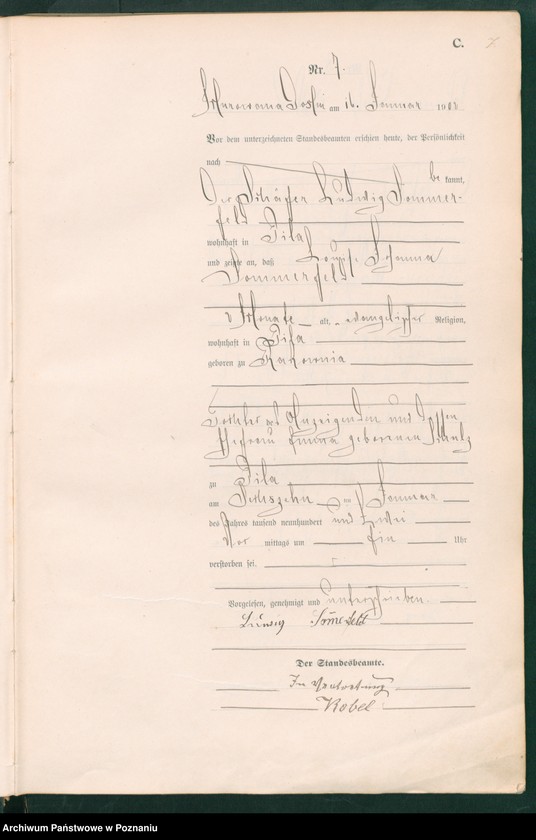 C. 7
Nr. 7.
Murowana Goslin am 16. Januar 1902
Vor dem unterzeichneten Standesbeamten erschien heute, der Persönlichkeit
nach be kannt,
Der Schäfer Ludwig Sommer-
feld
wohnhaft in Pila
und zeigte an, daß Johanna
Sommerfeld
Monate alt, evangelischer Religion,
wohnhaft in Pila
geboren zu
Tochter des Anzeigenden und dessen
Ehefrau Emma geborenen Schulz
zu Pila
am Sechszehn ten Januar
des Jahres tausend neunhundert und zwei
Vor mittags um Ein Uhr
verstorben sei.
Vorgelesen, genehmigt und unterschrieben.
Ludwig
Der Standesbeamte.
In Vertretung
Kobel
Archiwum Państwowe w Poznaniu